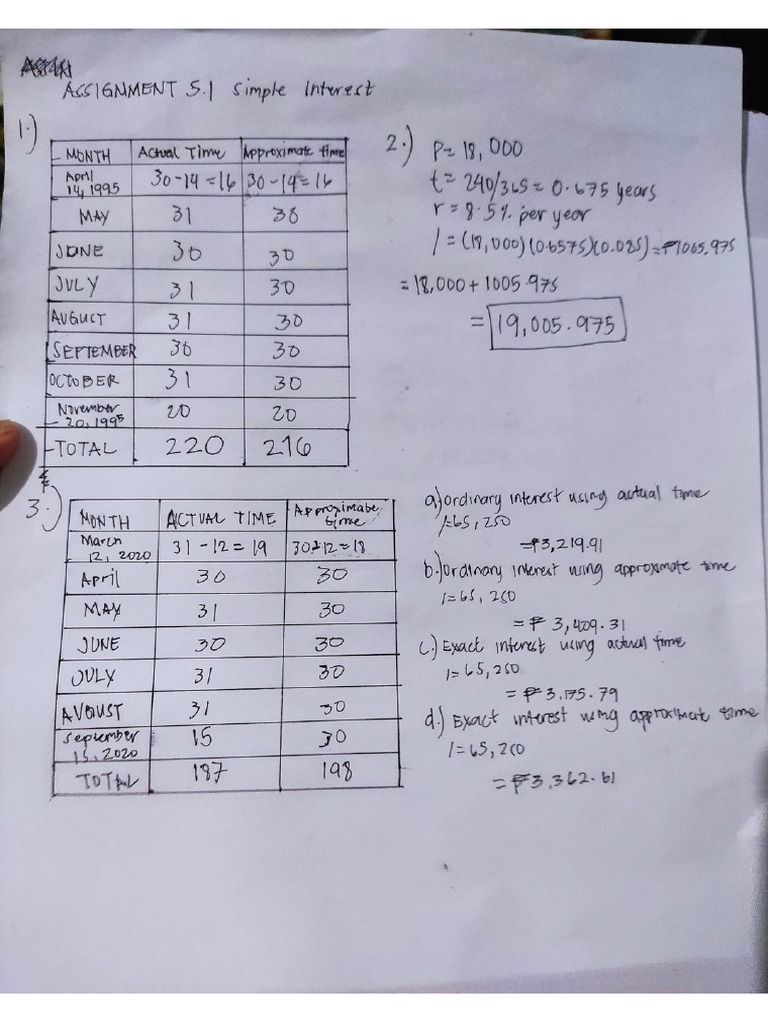 ASSIGNMENT 5.1 Simple Interest
1.)
MONTH Actual Time Approximate time
April 14, 1995 30-14=16 30-14=16
MAY 31 30
JUNE 30 30
JULY 31 30
AUGUST 31 30
SEPTEMBER 30 30
OCTOBER 31 30
November 20, 1995 20 20
TOTAL 220 216
2.) P= 18,000
t= 240/365= 0.675 years
r= 8.5% per year
I= (18,000)(0.6575)(0.085)=₱1065.975
= 18,000 + 1005.975
= 19,005.975
3.)
MONTH ACTUAL TIME Approximate time
March 12, 2020 31-12=19 30-12=18
April 30 30
MAY 31 30
JUNE 30 30
JULY 31 30
AUGUST 31 30
September 15, 2020 15 30
TOTAL 187 198
a.) ordinary interest using actual time
I=65,250
=₱3,219.91
b.) Ordinary interest using approximate time
I=65,250
=₱3,409.31
c.) Exact interest using actual time
I=65,250
=₱3,175.79
d.) Exact interest using approximate time
I=65,250
=₱3,362.61